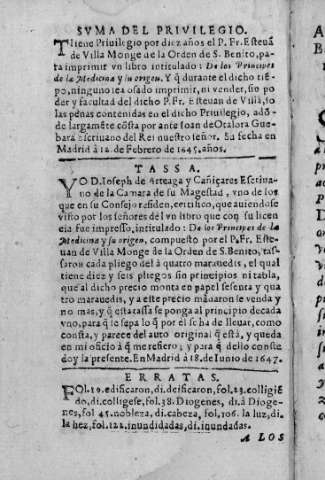 SVMA DEL PRIVILEGIO.
TIene Priuilegio por diez años el P. Fr. Esteuã
de Villa Monge de la Orden de S. Benito, pa-
ra imprimir vn libro intitulado: De los Principes
de la Medicina y su origen, Y q̃ durante el dicho tiẽ-
po, ninguno sea osado imprimir, ni vender, sin po
der y facultad del dicho P. Fr. Esteuan de Villa, so
las penas contenidas en el dicho Priuilegio, adõ-
de largamẽte cõsta por ante Ioan de Otalora Gue-
bara Escriuano del Rei nuestro señor. Su fecha en
Madrid à 12. de Febrero de 1645. años.
TASSA.
YO D. Ioseph de Arteaga y Cañiçares Escriua-
no de la Camara de su Magestad, vno de los
que en su Consejo residen, certifico, que auiendose
visto por los señores del vn libro que con su licen
cia fue impresso, intitulado: De los Principes de la
Medicina y su origen, compuesto por el P. Fr. Este-
uan de Villa Monge de la Orden de S. Benito, tas-
saron cada pliego del à quatro marauedis, el qual
tiene diez y seis pliegos sin principios ni tabla,
que al dicho precio monta en papel sesenta y qua
tro marauedis, y a este precio mãdaron se venda y
no mas, y q̃ esta tassa se ponga al principio de cada
vno, para q̃ se sepa lo q̃ por el se ha de lleuar, como
consta, y parece del auto original q̃ està, y queda
en mi oficio à q̃ me refiero; y para q̃ dello conste
doy la presente. En Madrid à 18. de Iunio de 1647.
ERRATAS.
FOl. 19. edificaron, di. deificaron, fol. 23. colligiẽ
do, di. colligese, fol. 38. Diogenes, di. à Dioge-
nes, fol 45. nobleza, di. cabeza, fol. 106. la luz, di.
la hez, fol. 122. inundidadas, di. inundadas.
A LOS